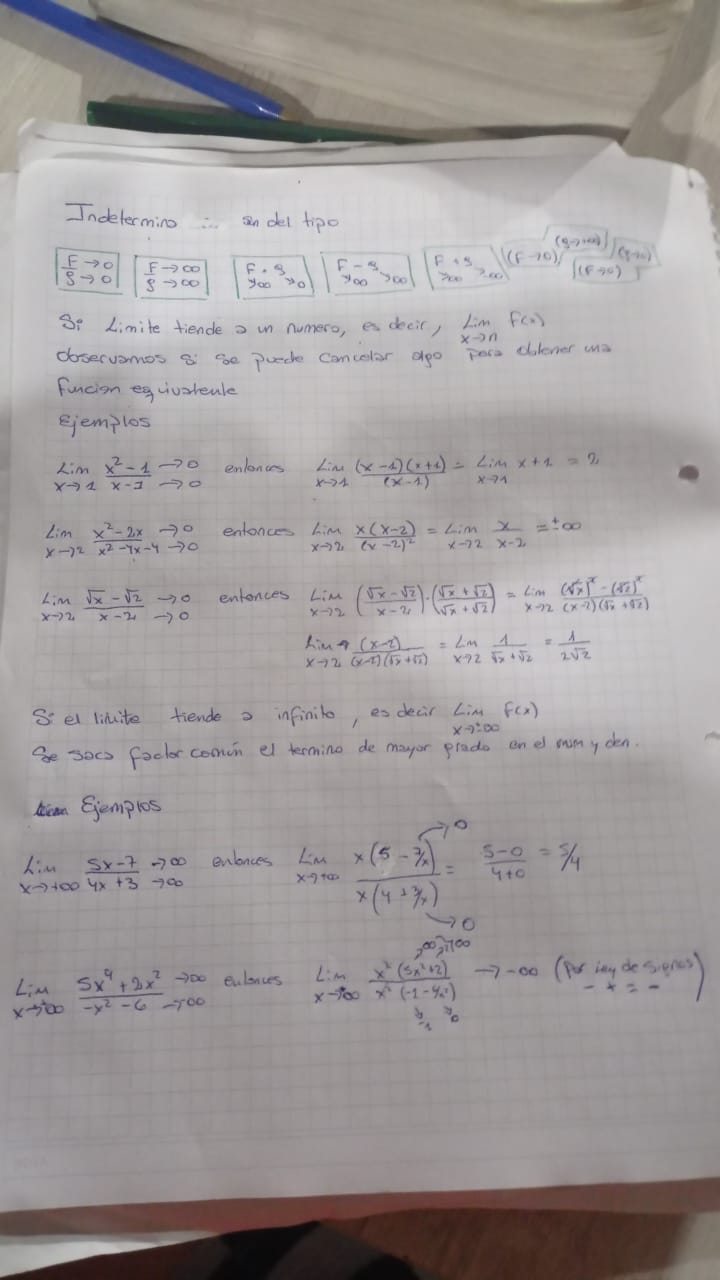 Indetermino son del tipo
F→0 / g→0  F→∞ / g→∞  F · g →∞ →0  F - g →∞ →∞  F + g →∞ →∞  (F→0)  (g→0)  (F→0)
Si Limite tiende a un numero, es decir, Lim x→n F(x)
observamos si se puede cancelar algo para obtener una
funcion equivalente
Ejemplos
Lim x→1 x²-1 / x-1 →0 →0 entonces Lim x→1 (x-1)(x+1) / (x-1) = Lim x→1 x+1 = 2
Lim x→2 x²-2x / x²-4x-4 →0 →0 entonces Lim x→2 x(x-2) / (x-2)² = Lim x→2 x / x-2 = ±∞
Lim x→2 √x - √2 / x-2 →0 →0 entonces Lim x→2 (√x - √2 / x-2) · (√x + √2 / √x + √2) = Lim x→2 (√x)² - (√2)² / (x-2)(√x + √2)
Lim x→2 (x-2) / (x-2)(√x+√2) = Lim x→2 1 / √x + √2 = 1 / 2√2
Si el limite tiende a infinito, es decir Lim x→±∞ F(x)
Se saca factor común el termino de mayor grado en el num y den.
Ejemplos
Lim x→+∞ 5x-7 / 4x+3 →∞ →∞ entonces Lim x→+∞ x(5 - 7/x) / x(4+3/x) →0 →0 = 5-0 / 4+0 = 5/4
Lim x→∞ 5x⁴+2x² / -x²-6 →∞ →∞ entonces Lim x→∞ x²(5x²+2) / x² →∞ →-1 →0 → -∞ (Por Ley de Signos)
- + = -